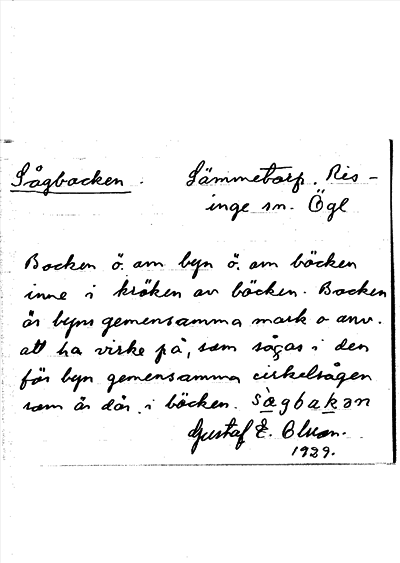 Sågbacken. Sämmetorp. Ris-
inge sn. Ögl
Backen ö. om byn ö. om bäcken
inne i kröken av bäcken. Backen
är byns gemensamma mark o anv.
att ha virke på, som sågas i den
för byn gemensamma cirkelsågen
som är där i bäcken. sàgbakən
Gustaf E. Olson.
1929.